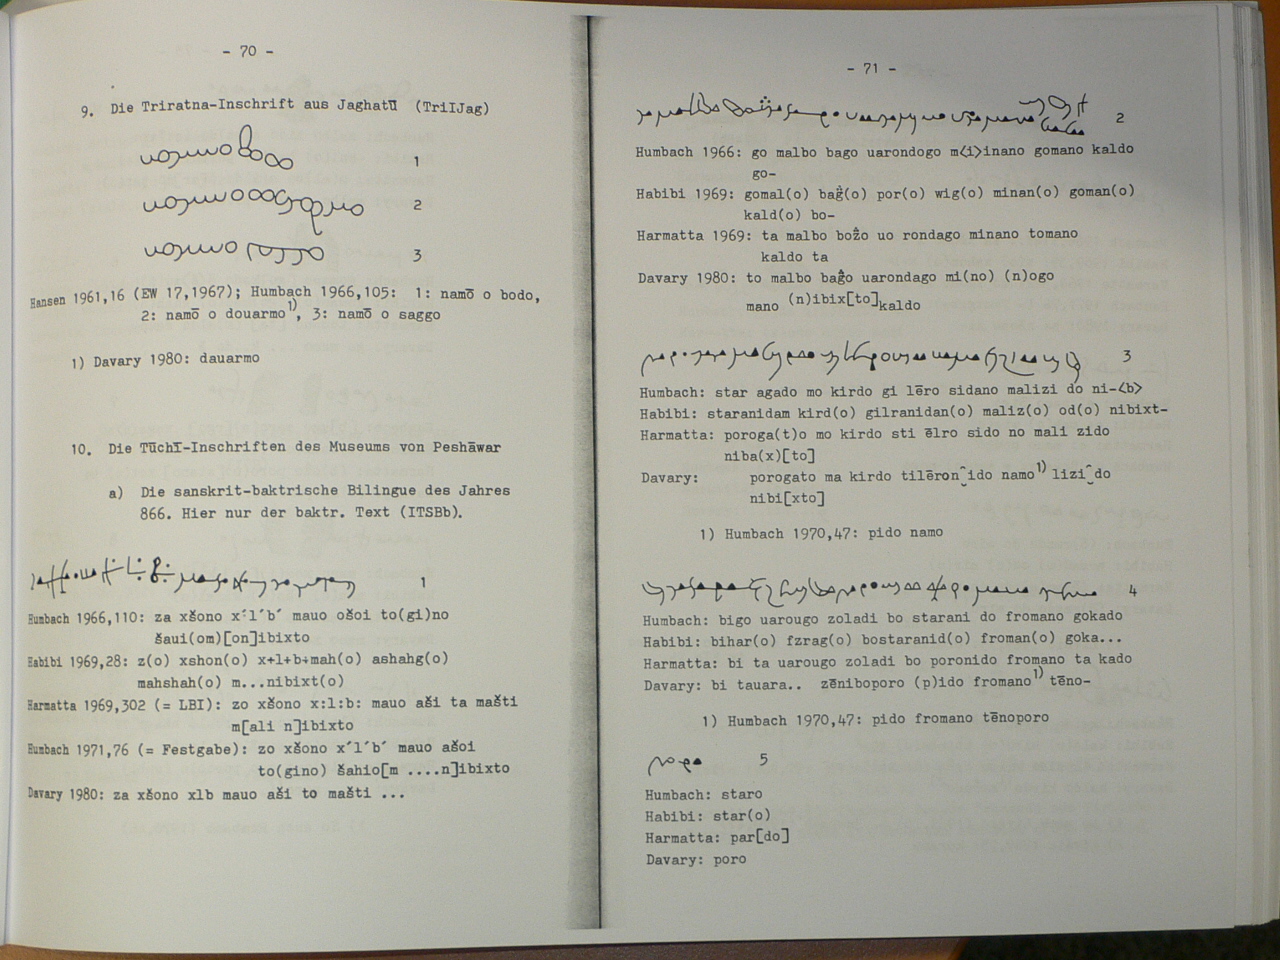 - 70 -
9. Die Triratna-Inschrift aus Jaghatū (TriIJag)
1
2
3
Hansen 1961,16 (EW 17,1967); Humbach 1966,105: 1: namō o bodo,
2: namō o douarmo1), 3: namō o saggo
1) Davary 1980: dauarmo
10. Die Tūchī-Inschriften des Museums von Peshāwar
a) Die sanskrit-baktrische Bilingue des Jahres
866. Hier nur der baktr. Text (ITSBb).
1
Humbach 1966,110: za xšono x´l´b´ mauo ošoi to(gi)no
šaui(om)[on]ibixto
Habibi 1969,28: z(o) xshon(o) x+l+b+mah(o) ashahg(o)
mahshah(o) m...nibixt(o)
Harmatta 1969,302 (= LBI): zo xšono x:l:b: mauo aši ta mašti
m[ali n]ibixto
Humbach 1971,76 (= Festgabe): zo xšono x´l´b´ mauo ašoi
to(gino) šahio[m ....n]ibixto
Davary 1980: za xšono xlb mauo aši to mašti ...
- 71 -
2
Humbach 1966: go malbo bago uarondogo m<i>inano gomano kaldo
go-
Habibi 1969: gomal(o) bag̊(o) por(o) wig(o) minan(o) goman(o)
kald(o) bo-
Harmatta 1969: ta malbo božo uo rondago minano tomano
kaldo ta
Davary 1980: to malbo uarondago mi(no) (n)ogo
mano (n)ibix[to]kaldo
3
Humbach: star agado mo kirdo gi lēro sidano malizi do ni-<b>
Habibi: staranidam kird(o) gilranidan(o) maliz(o) od(o) nibixt-
Harmatta: poroga(t)o mo kirdo sti ēlro sido no mali zido
niba(x)[to]
Davary: porogato ma kirdo tilēron‿ido namo1) lizi‿do
nibi[xto]
1) Humbach 1970,47: pido namo
4
Humbach: bigo uarougo zoladi bo starani do fromano gokado
Habibi: bihar(o) fzrag(o) bostaranid(o) froman(o) goka...
Harmatta: bi ta uarougo zoladi bo poronido fromano ta kado
Davary: bi tauara.. zēniboporo (p)ido fromano1) tēno-
1) Humbach 1970,47: pido fromano tēnoporo
5
Humbach: staro
Habibi: star(o)
Harmatta: par[do]
Davary: poro